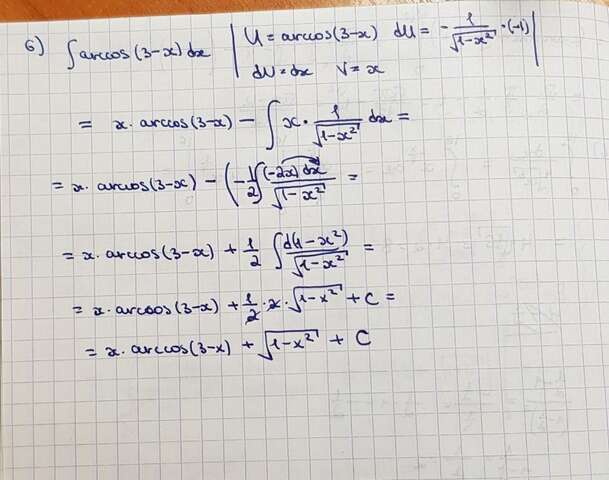 6) ∫ arccos(3-x) dx | U = arccos(3-x) dU = - 1/√(1-x²) · (-1) |
dV = dx V = x
= x · arccos(3-x) - ∫ x · 1/√(1-x²) dx =
= x · arccos(3-x) - (-1/2) ∫ (-2x) dx/√(1-x²) =
= x · arccos(3-x) + 1/2 ∫ d(1-x²)/√(1-x²) =
= x · arccos(3-x) + 1/2 · 2 · √(1-x²) + C =
= x · arccos(3-x) + √(1-x²) + C